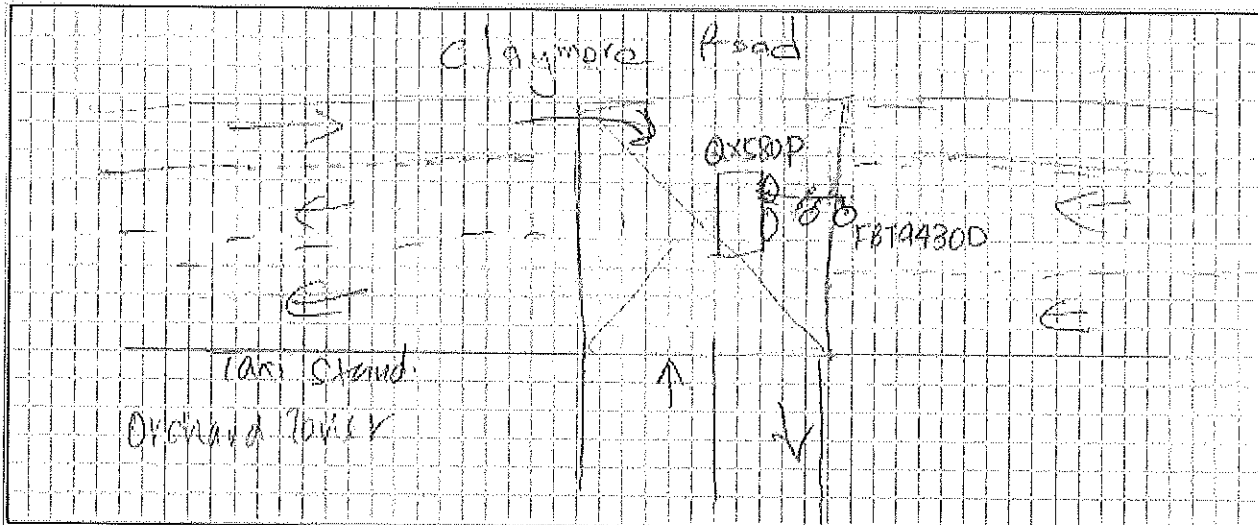 Claymore Road
QX580P
FBT9430D
Taxi Stand.
Orchard Tower